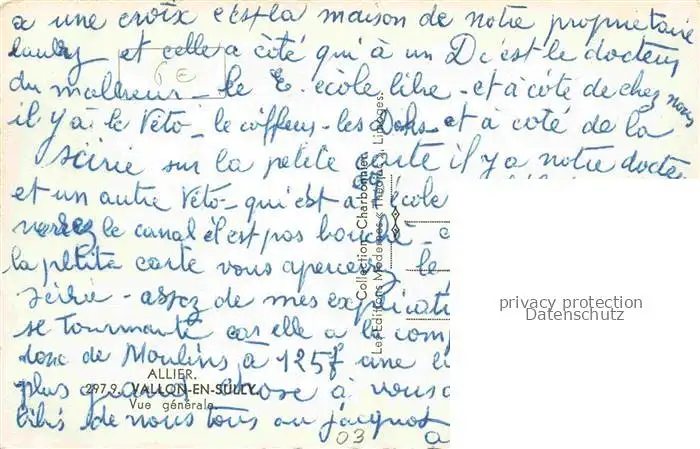 a une croix c'est la maison de notre propriétaire
et celle a côté qui à un D c'est le docteur
du malheur - le E. école libre - et à côté de chez nous
il y a le Véto - le coiffeur - les Docks et à côté de la
scirie sur la petite carte il y a notre docteur
et un autre Véto - qui est à l'école
verrez le canal il est pas bouché -
la petite carte vous apercevez le
scirie - assez de mes explicati
se tourmente car elle a le com
donc de Moulins à 125 f une
plus grand chose à vous
de nous tous au jacquot
6€
Collection Charbonnier
Les Editions Modernes « Théojac », Limoges.
ALLIER.
297.9. VALLON-EN-SULLY.
Vue générale.
03
privacy protection
Datenschutz